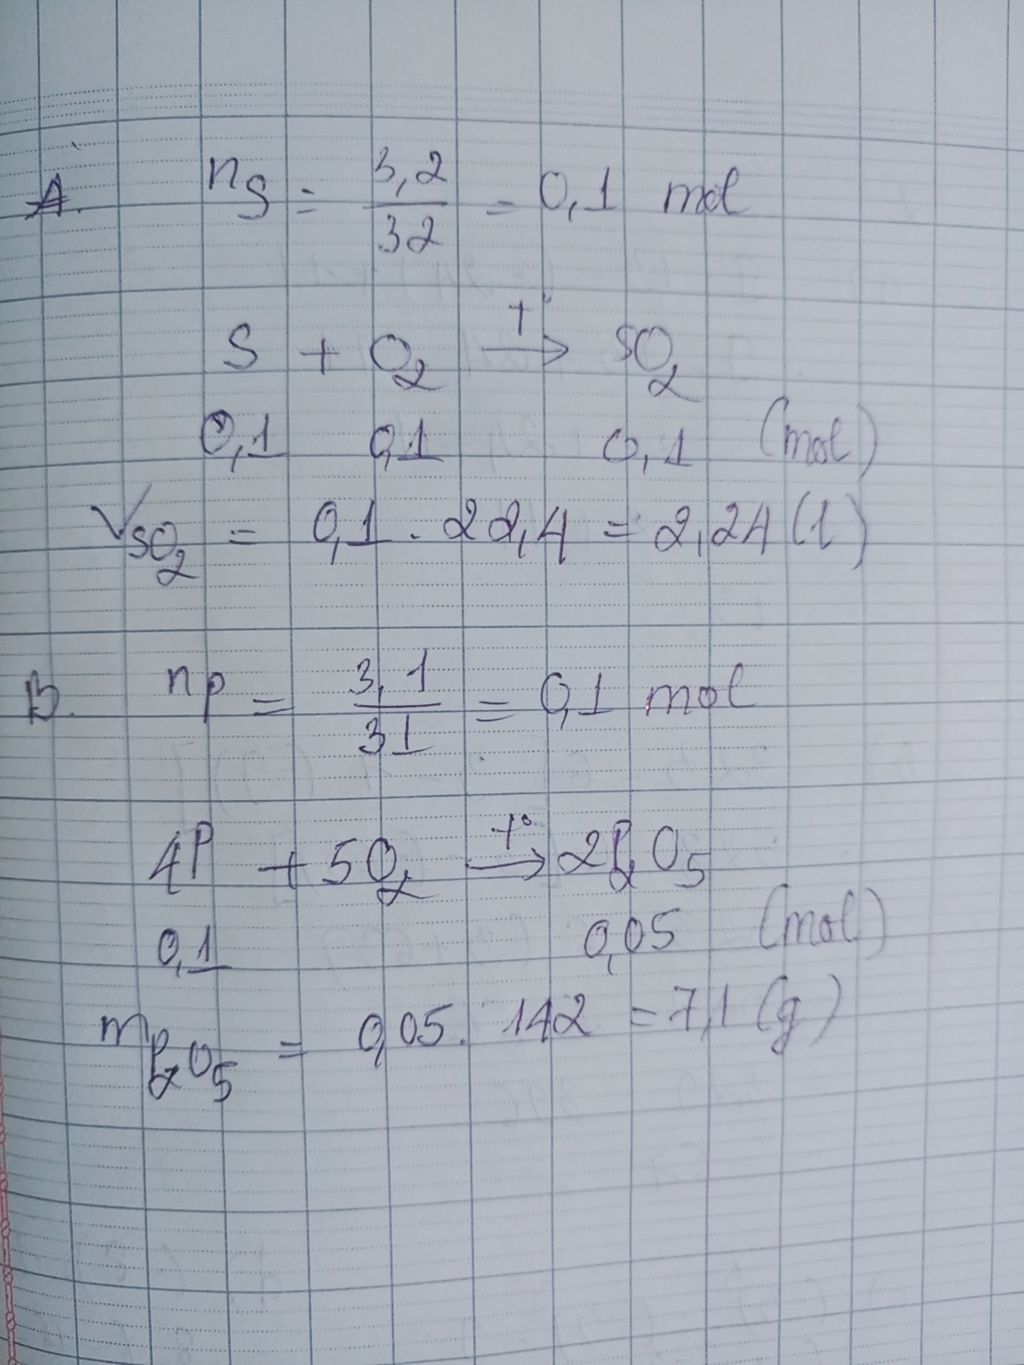 A. nS = 3,2/32 = 0,1 mol
S + O2 t°→ SO2
0,1 0,1 0,1 (mol)
VSO2 = 0,1 . 22,4 = 2,24 (l)
B. nP = 3,1/31 = 0,1 mol
4P + 5O2 t°→ 2P2O5
0,1 0,05 (mol)
mP2O5 = 0,05 . 142 = 7,1 (g)